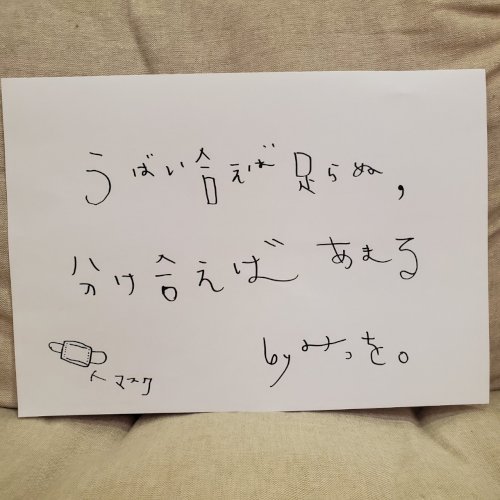 うばい合えば足らぬ,
分け合えば あまる
by みつを。
マスク